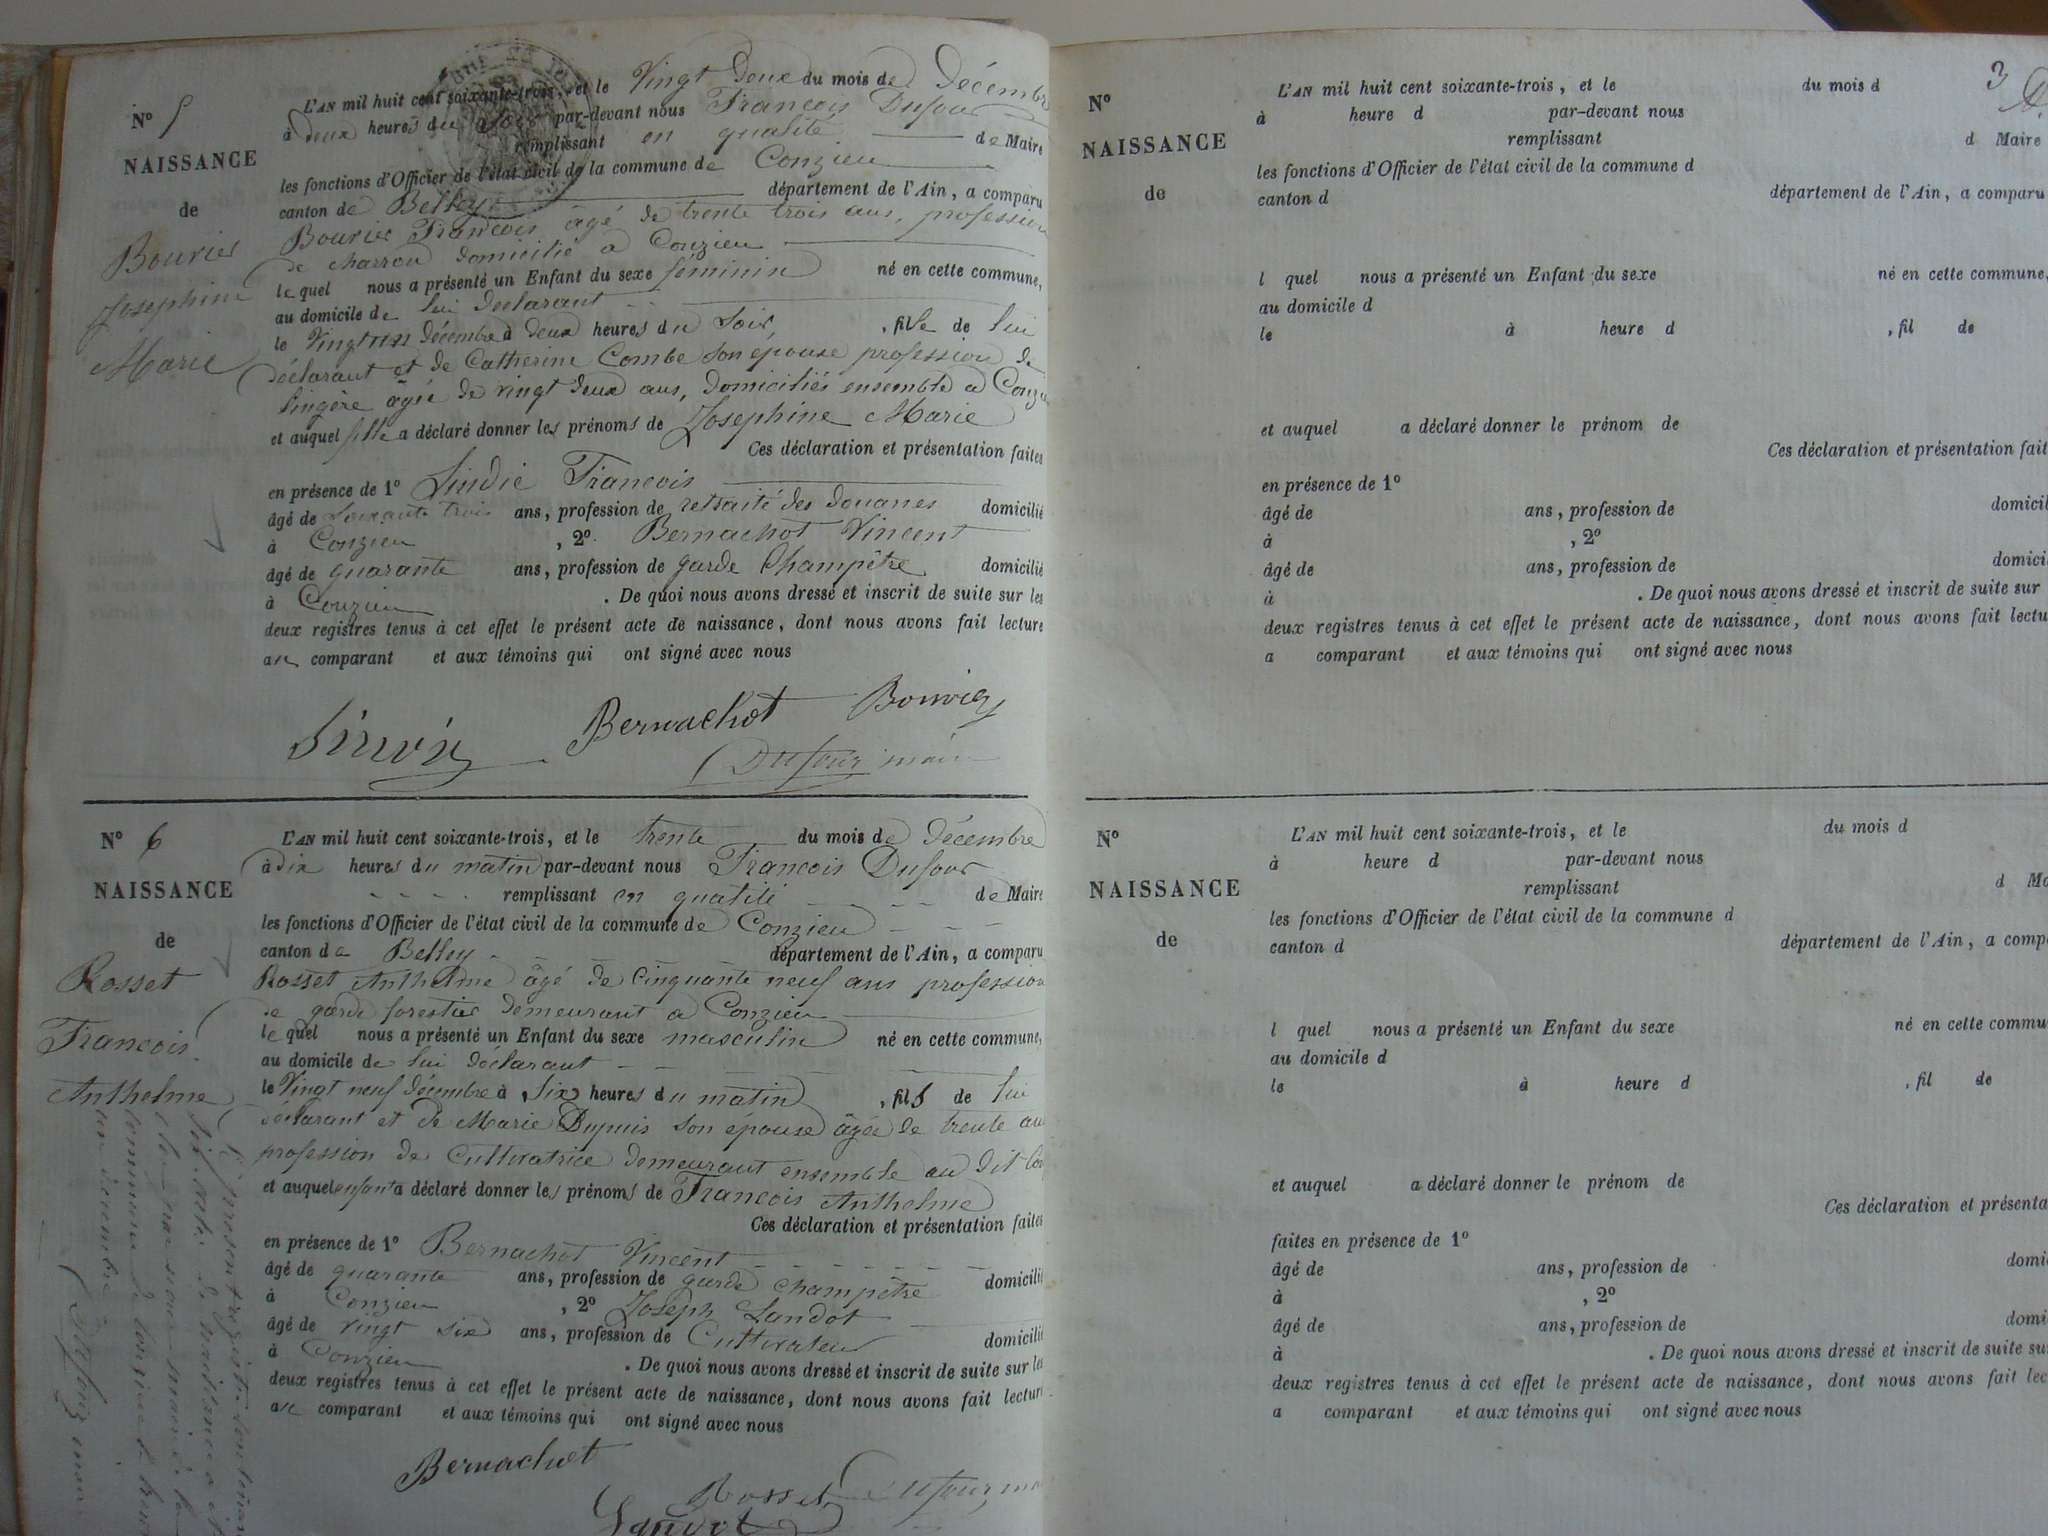 N° 5
NAISSANCE
de
Bouvier
Josephine
Marie
L'AN mil huit cent soixante-trois, et le Vingt Deux du mois de Décembre
à deux heures du soir par-devant nous François Dufour
remplissant en qualité de Maire
les fonctions d'Officier de l'état civil de la commune de Conzieu
canton de Belley département de l'Ain, a comparu
Bouvier François âgé de trente trois ans, profession
de charron domicilié à Conzieu
lequel nous a présenté un Enfant du sexe féminin né en cette commune,
au domicile de lui déclarant
le Vingt un décembre à deux heures du soir, fille de lui
déclarant et de Catherine Combe son épouse profession de
lingère âgée de vingt deux ans, domiciliés ensemble à
et auquel fille a déclaré donner les prénoms de Josephine Marie
Ces déclaration et présentation faites
en présence de 1° François
âgé de soixante trois ans, profession de retraité des douanes domicilié
à Conzieu, 2° Bernachot Vincent
âgé de quarante ans, profession de garde Champêtre domicilié
à Conzieu. De quoi nous avons dressé et inscrit de suite sur les
deux registres tenus à cet effet le présent acte de naissance, dont nous avons fait lecture
au comparant et aux témoins qui ont signé avec nous
Bernachot Bouvier
Dufour maire
N° 6
NAISSANCE
de
Rosset
François
Anthelme
L'AN mil huit cent soixante-trois, et le trente du mois de Décembre
à dix heures du matin par-devant nous François Dufour
remplissant en qualité de Maire
les fonctions d'Officier de l'état civil de la commune de Conzieu
canton de Belley département de l'Ain, a comparu
Rosset Anthelme âgé de cinquante neuf ans profession
de garde forestier demeurant à Conzieu
lequel nous a présenté un Enfant du sexe masculin né en cette commune,
au domicile de lui déclarant
le Vingt neuf décembre à six heures du matin, fils de lui
déclarant et de Marie Dupuis son épouse âgée de trente
profession de Cultivatrice demeurant ensemble au dit
et auquel enfant a déclaré donner les prénoms de François Anthelme
Ces déclaration et présentation faites
en présence de 1° Bernachot Vincent
âgé de quarante ans, profession de garde champêtre domicilié
à Conzieu, 2° Joseph Landot
âgé de vingt six ans, profession de Cultivateur domicilié
à Conzieu. De quoi nous avons dressé et inscrit de suite sur les
deux registres tenus à cet effet le présent acte de naissance, dont nous avons fait lecture
au comparant et aux témoins qui ont signé avec nous
Bernachot
Rosset Dufour
Landot
3
N°
NAISSANCE
de
L'AN mil huit cent soixante-trois, et le du mois d
à heure d par-devant nous
remplissant d Maire
les fonctions d'Officier de l'état civil de la commune d
canton d département de l'Ain, a comparu
l quel nous a présenté un Enfant du sexe né en cette commune,
au domicile d
le à heure d , fil de
et auquel a déclaré donner le prénom de
Ces déclaration et présentation fait
en présence de 1°
âgé de ans, profession de domicil
à , 2°
âgé de ans, profession de domici
à . De quoi nous avons dressé et inscrit de suite sur
deux registres tenus à cet effet le présent acte de naissance, dont nous avons fait lectu
a comparant et aux témoins qui ont signé avec nous
N°
NAISSANCE
de
L'AN mil huit cent soixante-trois, et le du mois d
à heure d par-devant nous
remplissant d Ma
les fonctions d'Officier de l'état civil de la commune d
canton d département de l'Ain, a comp
l quel nous a présenté un Enfant du sexe né en cette commu
au domicile d
le à heure d , fil de
et auquel a déclaré donner le prénom de
Ces déclaration et présenta
faites en présence de 1°
âgé de ans, profession de domi
à , 2°
âgé de ans, profession de domi
à . De quoi nous avons dressé et inscrit de suite su
deux registres tenus à cet effet le présent acte de naissance, dont nous avons fait lec
a comparant et aux témoins qui ont signé avec nous